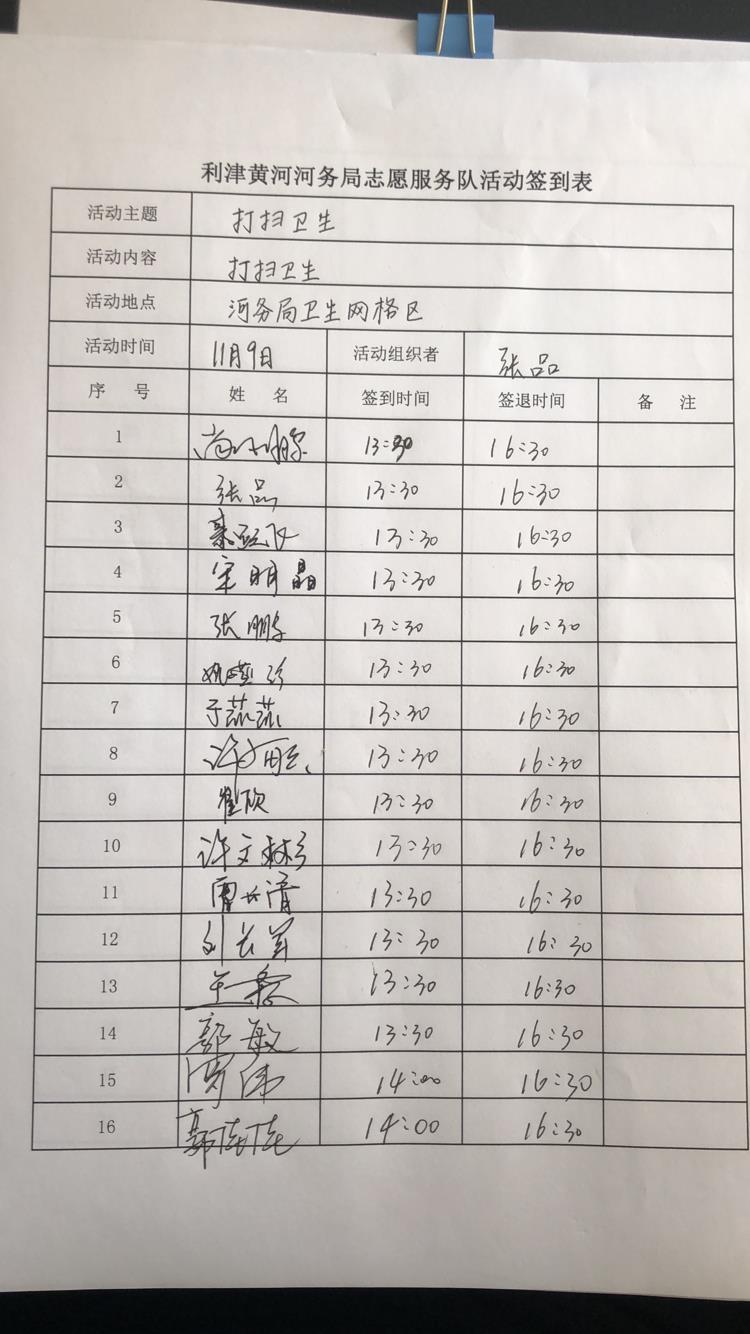 利津黄河河务局志愿服务队活动签到表
活动主题 打扫卫生
活动内容 打扫卫生
活动地点 河务局卫生网格区
活动时间 11月9日 活动组织者 张品
序 号 姓 名 签到时间 签退时间 备 注
1 13:30 16:30
2 张品 13:30 16:30
3 13:30 16:30
4 宋明晶 13:30 16:30
5 张鹏 13:30 16:30
6 13:30 16:30
7 于蕊蕊 13:30 16:30
8 13:30 16:30
9 崔欣 13:30 16:30
10 许文彬 13:30 16:30
11 13:30 16:30
12 刘长军 13:30 16:30
13 13:30 16:30
14 郭敏 13:30 16:30
15 14:00 16:30
16 郭倩倩 14:00 16:30